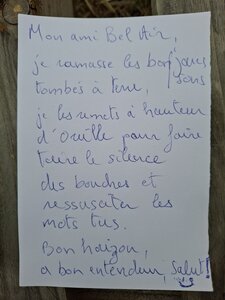 Mon ami Bel Air,
je ramasse les bons jours
sons
tombés à terre,
je les remets à hauteur
d'Oreille pour faire
taire le silence
des bouches et
ressusciter les
mots tus.
Bon horizon,
a bon entendeur, Salut!